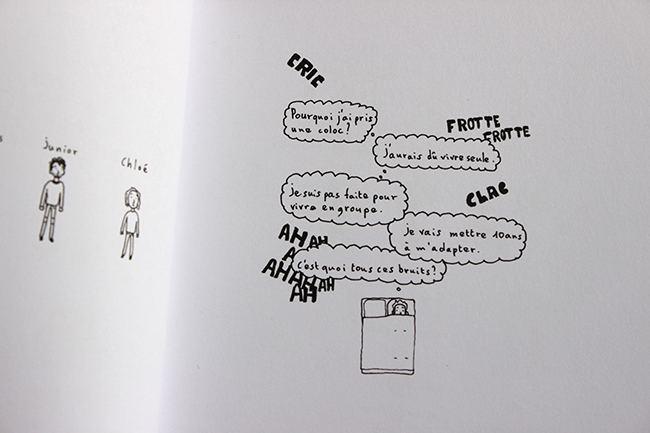 Junior
Chloé
CRIC
Pourquoi j'ai pris
une coloc?
FROTTE
FROTTE
j'aurais dû vivre seule.
je suis pas faite pour
vivre en groupe.
CLAC
je vais mettre 10ans
à m'adapter.
AH AH
c'est quoi tous ces bruits?
AHAHAH AH
AH